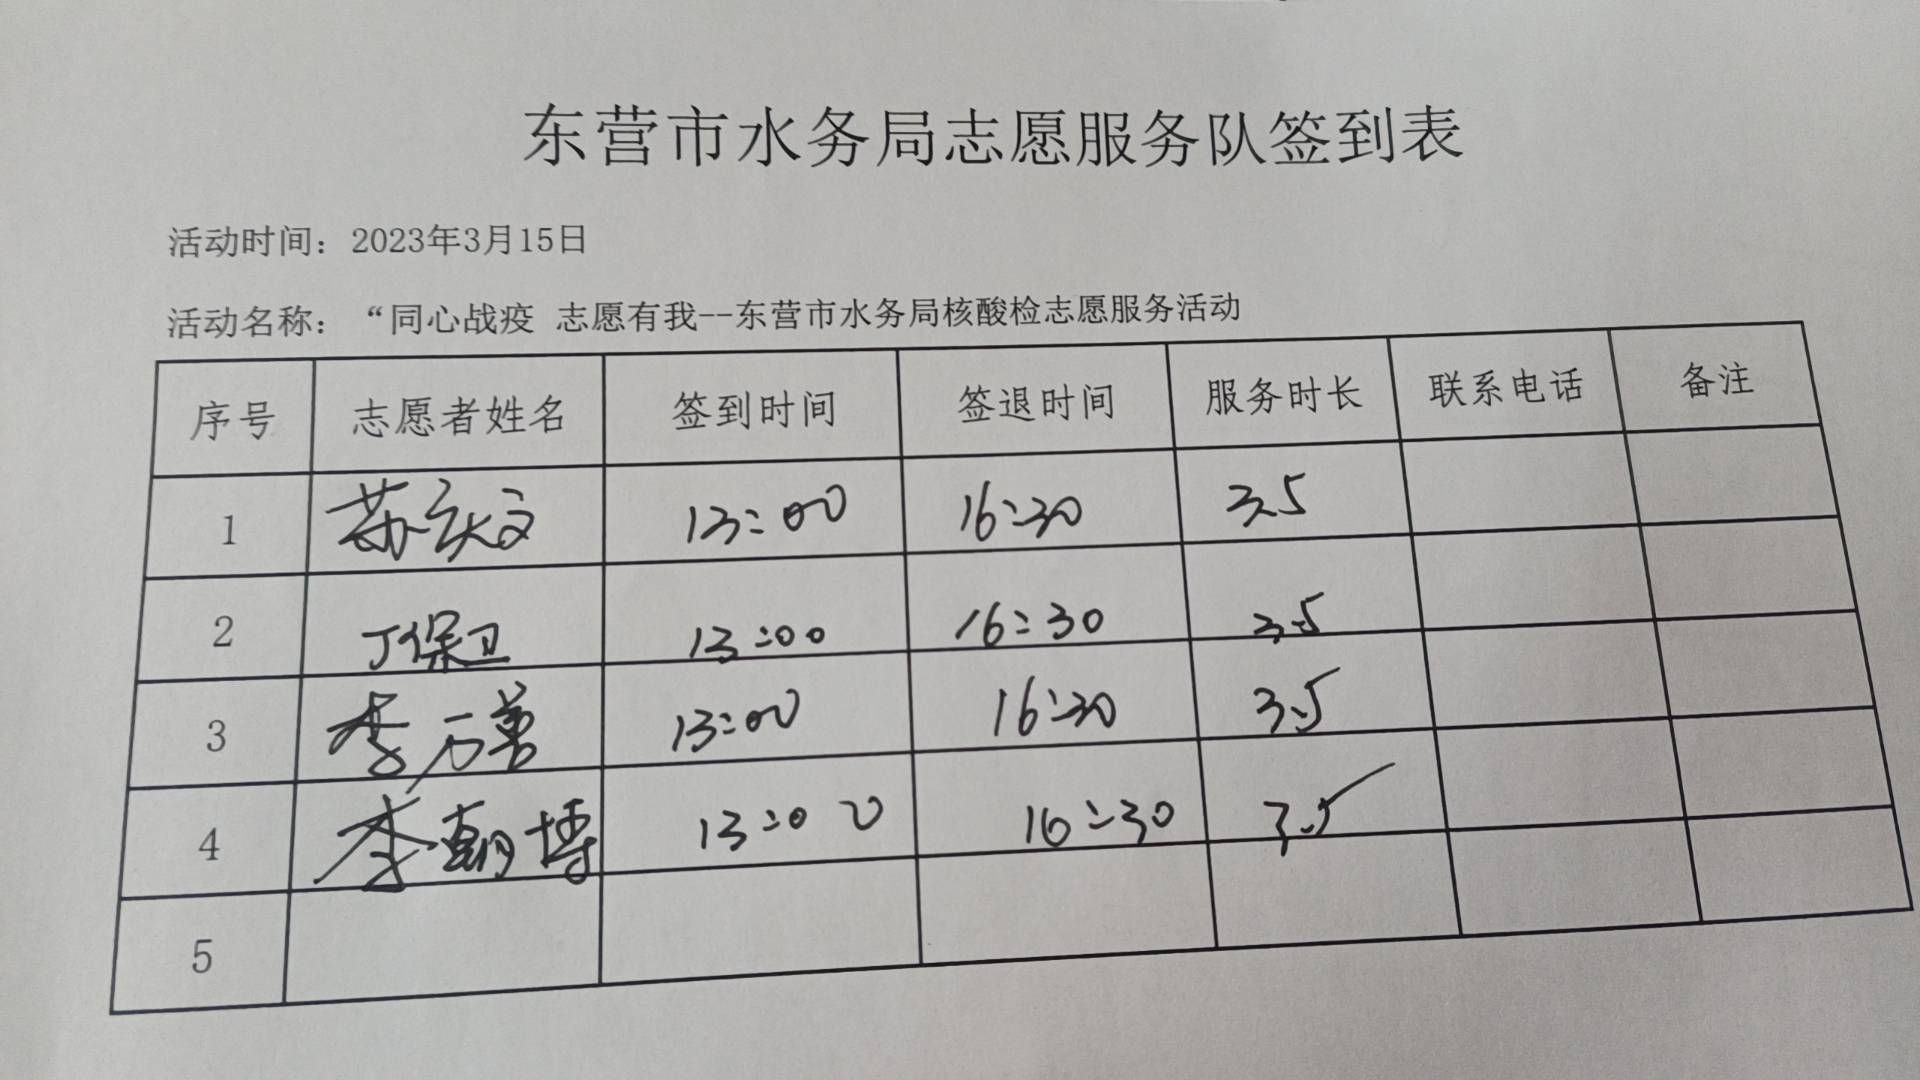 东营市水务局志愿服务队签到表
活动时间：2023年3月15日
活动名称：“同心战疫 志愿有我--东营市水务局核酸检志愿服务活动
序号 志愿者姓名 签到时间 签退时间 服务时长 联系电话 备注
1 苏庆文 13:00 16:30 3.5
2 丁保卫 13:00 16:30 3.5
3 李万 13:00 16:30 3.5
4 李朝博 13:00 16:30 3.5
5